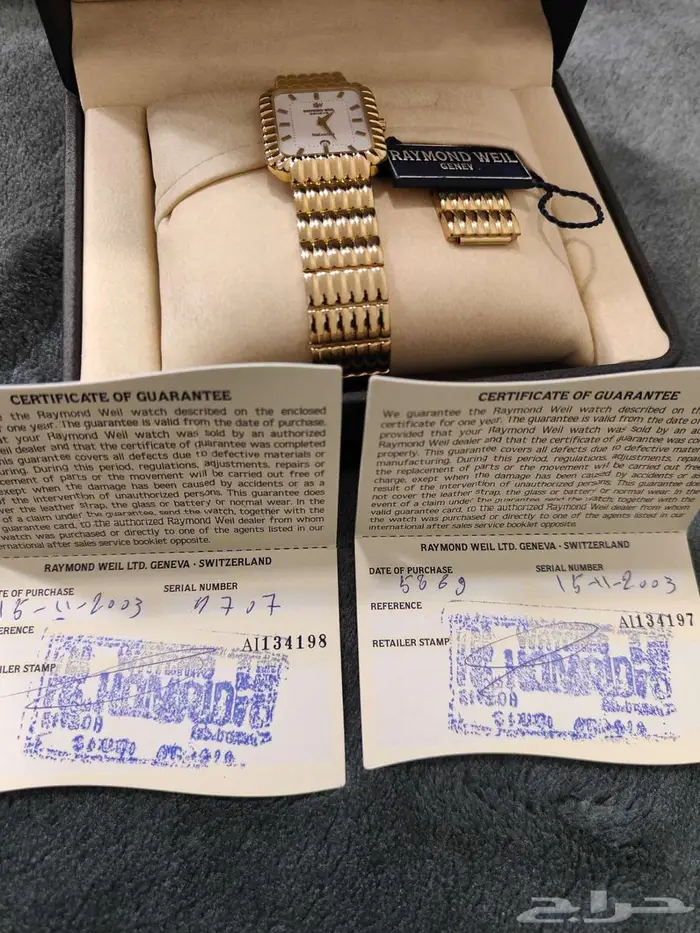 RAYMOND WEIL
GENEV
CERTIFICATE OF GUARANTEE
e the Raymond Weil watch described on the enclosed
r one year. The guarantee is valid from the date of purchase.
at your Raymond Weil watch was sold by an authorized
eil dealer and that the certificate of guarantee was completed
his guarantee covers all defects due to defective materials or
uring. During this period, regulations, adjustments, repairs or
cement of parts or the movement will be carried out free of
except when the damage has been caused by accidents or as a
of the intervention of unauthorized persons. This guarantee does
ver the leather strap, the glass or battery or normal wear. In the
of a claim under the guarantee, send the watch, together with the
uarantee card, to the authorized Raymond Weil dealer from whom
watch was purchased or directly to one of the agents listed in our
ernational after sales service booklet opposite.
RAYMOND WEIL LTD. GENEVA · SWITZERLAND
TE OF PURCHASE
SERIAL NUMBER
15-11-2003
9707
ERENCE
AI134198
ILER STAMP
CERTIFICATE OF GUARANTEE
We guarantee the Raymond Weil watch described on th
certificate for one year. The guarantee is valid from the date of
provided that your Raymond Weil watch was sold by an au
Raymond Weil dealer and that the certificate of guarantee was co
properly. This guarantee covers all defects due to defective mater
manufacturing. During this period, regulations, adjustments, repai
the replacement of parts or the movement will be carried out free
charge, except when the damage has been caused by accidents or as
result of the intervention of unauthorized persons. This guarantee do
not cover the leather strap, the glass or battery or normal wear. In the
event of a claim under the guarantee send the watch together with the
valid guarantee card, to the authorized Raymond Weil dealer from whom
the watch was purchased or directly to one of the agents listed in our
international after sales service booklet opposite.
RAYMOND WEIL LTD. GENEVA · SWITZERLAND
DATE OF PURCHASE
SERIAL NUMBER
5869
15-11-2003
REFERENCE
AI134197
RETAILER STAMP
حراج